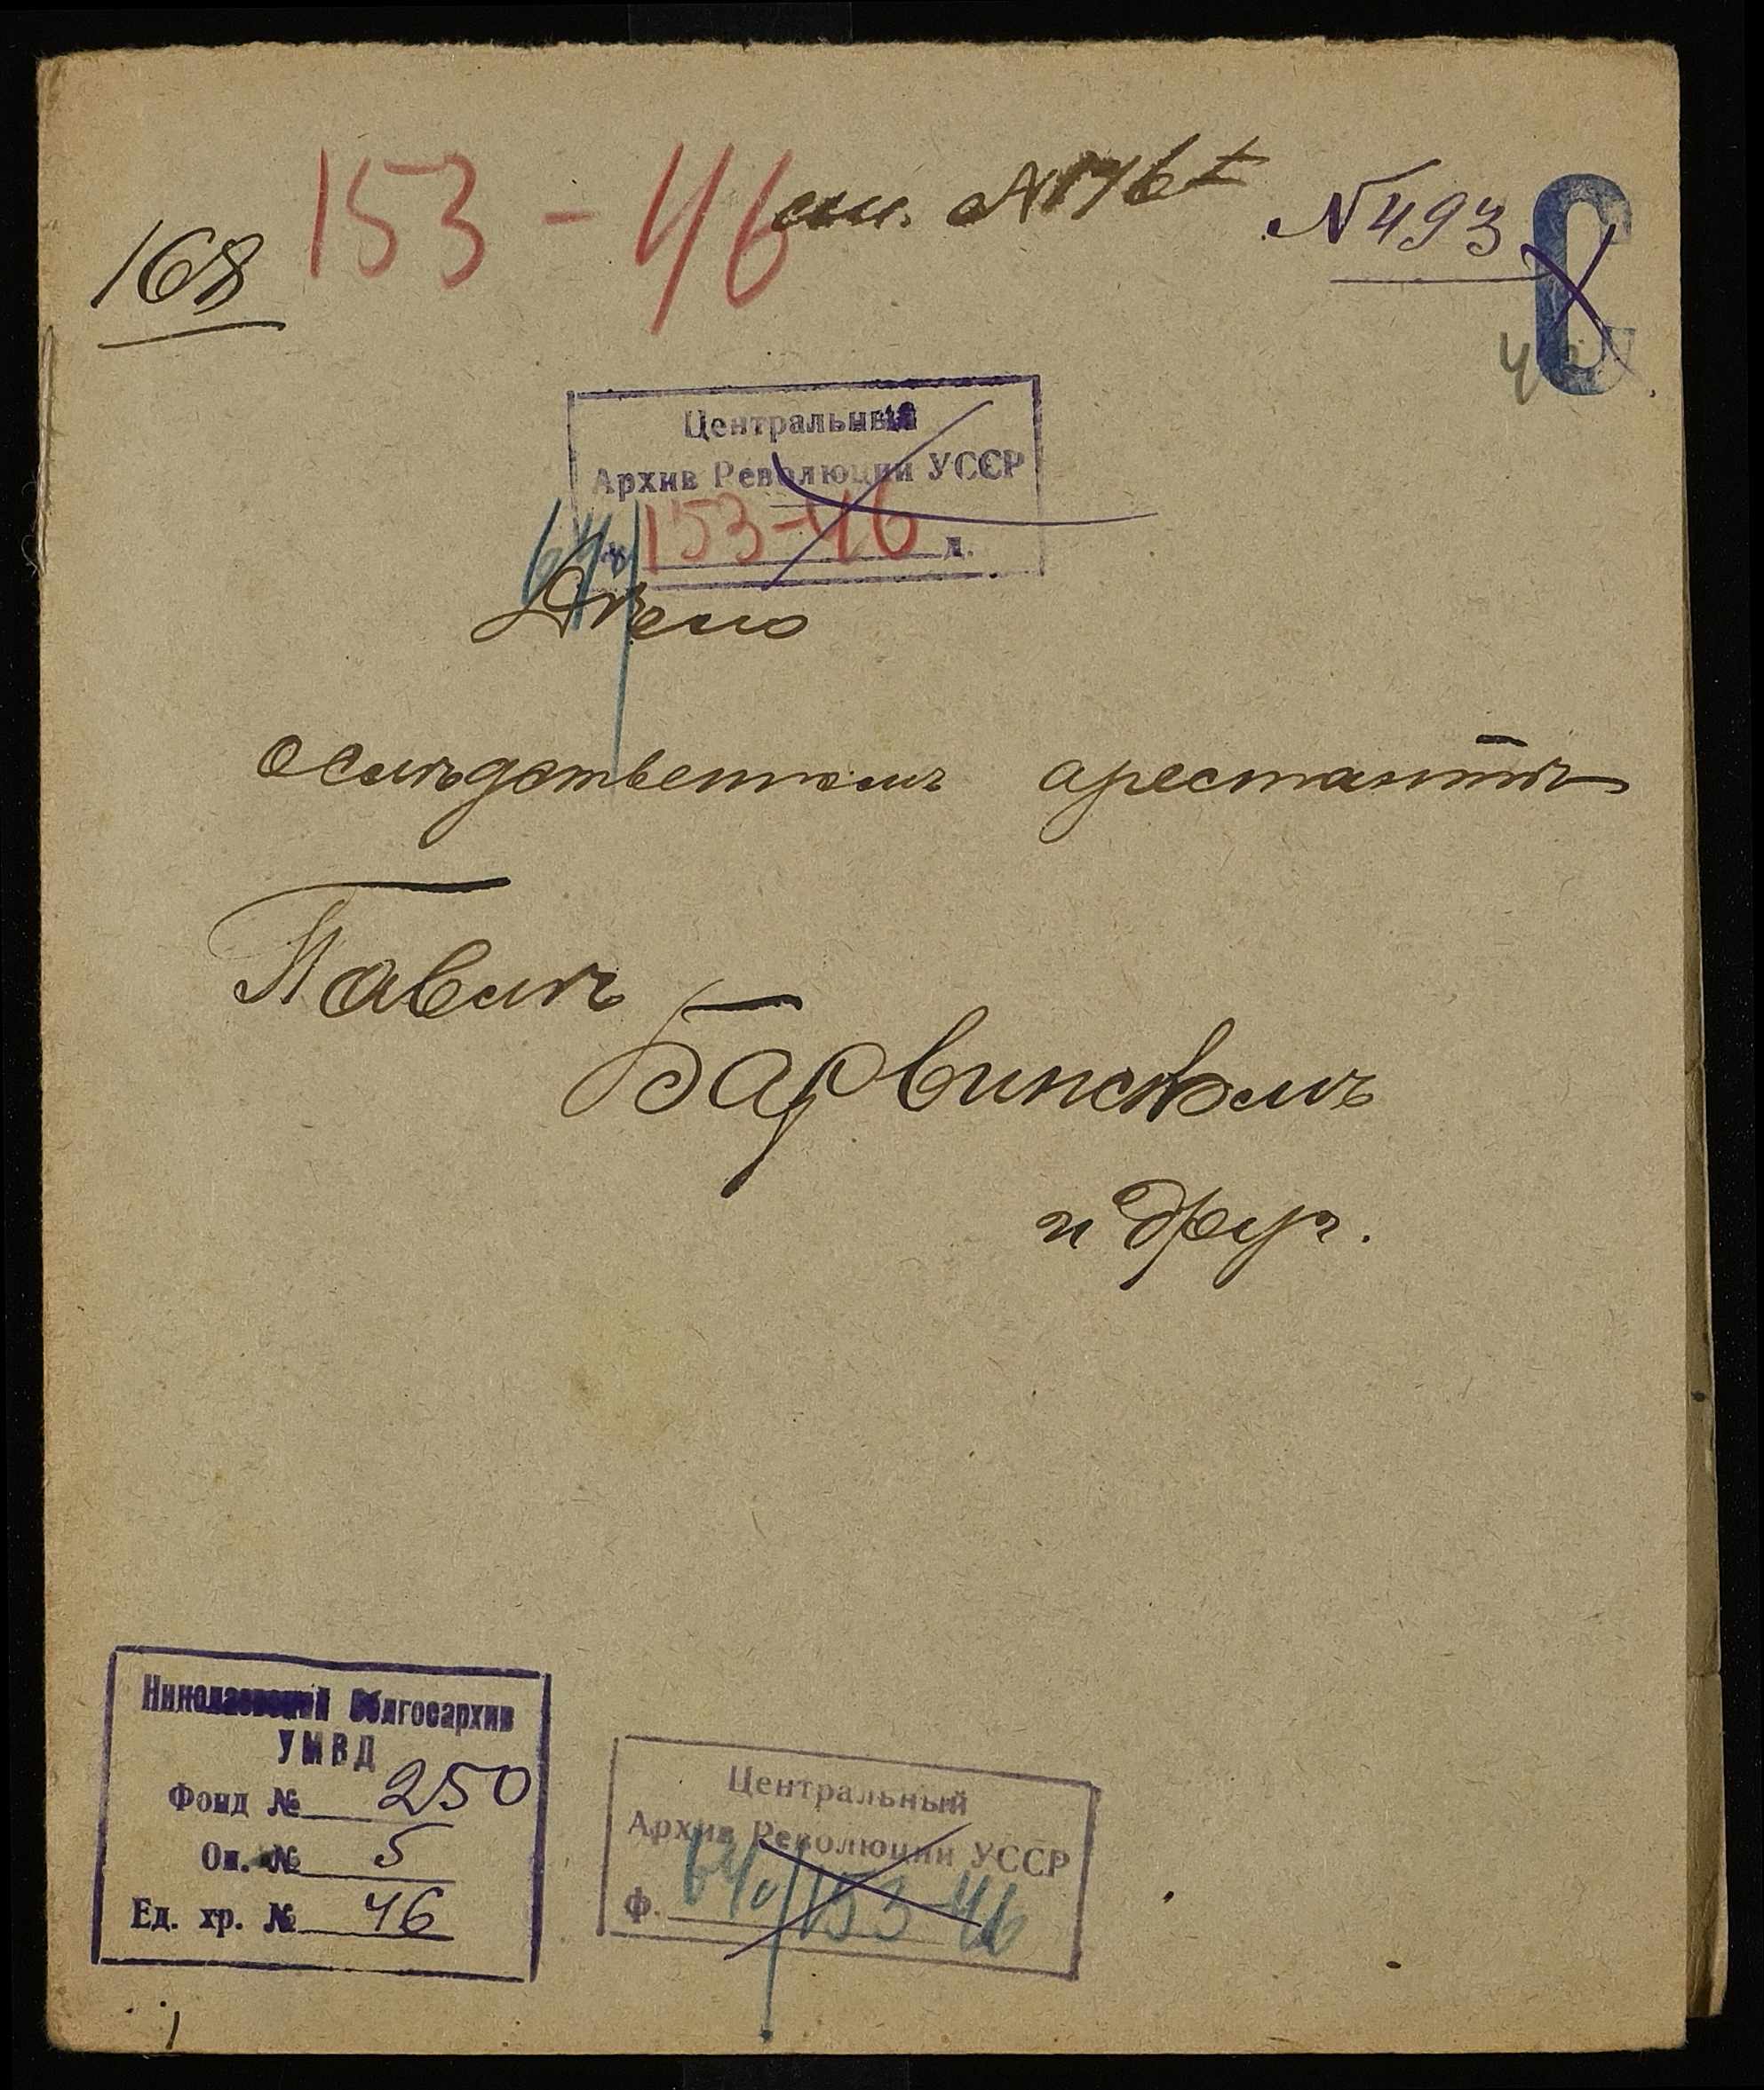 168
153-46
№ 493
Центральный
Архив Революции УССР
153-46 д.
Дѣло
о слѣдственномъ арестантѣ
Павлѣ
Барвинскомъ
и друг.
Николаевский Облгосархив
УМВД
Фонд № 250
Оп. № 5
Ед. хр. № 46
Центральный
Архив Революции УССР
ф. 153-46